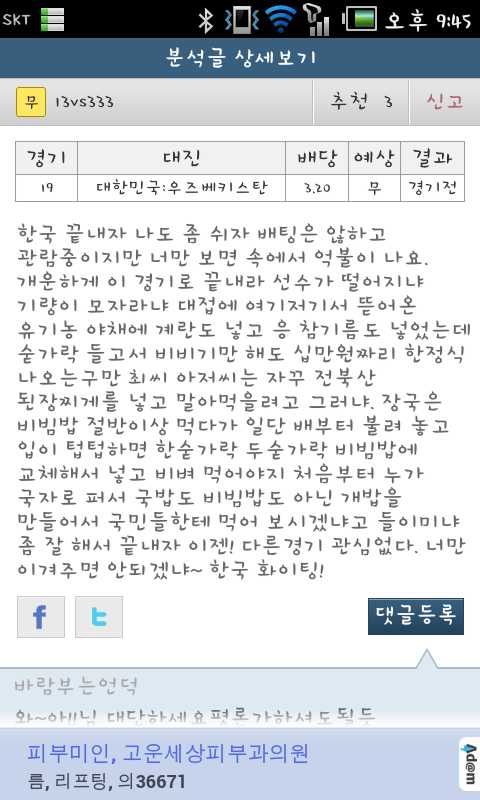 SKT 오후 9:45
분석글 상세보기
무 13vs333 추천 3 신고
경기 대진 배당 예상 결과
19 대한민국:우즈베키스탄 3.20 무 경기전
한국 끝내자 나도 좀 쉬자 배팅은 않하고
관람중이지만 너만 보면 속에서 억불이 나요.
개운하게 이 경기로 끝내라 선수가 떨어지냐
기량이 모자라냐 대접에 여기저기서 뜯어온
유기농 야채에 계란도 넣고 응 참기름도 넣었는데
숟가락 들고서 비비기만 해도 십만원짜리 한정식
나오는구만 최씨 아저씨는 자꾸 전북산
된장찌게를 넣고 말아먹을려고 그러냐. 장국은
비빔밥 절반이상 먹다가 일단 배부터 불려 놓고
입이 텁텁하면 한숟가락 두숟가락 비빔밥에
교체해서 넣고 비벼 먹어야지 처음부터 누가
국자로 퍼서 국밥도 비빔밥도 아닌 개밥을
만들어서 국민들한테 먹어 보시겠냐고 들이미냐
좀 잘 해서 끝내자 이젠! 다른경기 관심없다. 너만
이겨주면 안되겠냐~ 한국 화이팅!
f t 댓글등록
바람부는언덕
와~아!!님 대단하세요평론가하셔도될듯
피부미인, 고운세상피부과의원
름, 리프팅, 의36671
Ad@m